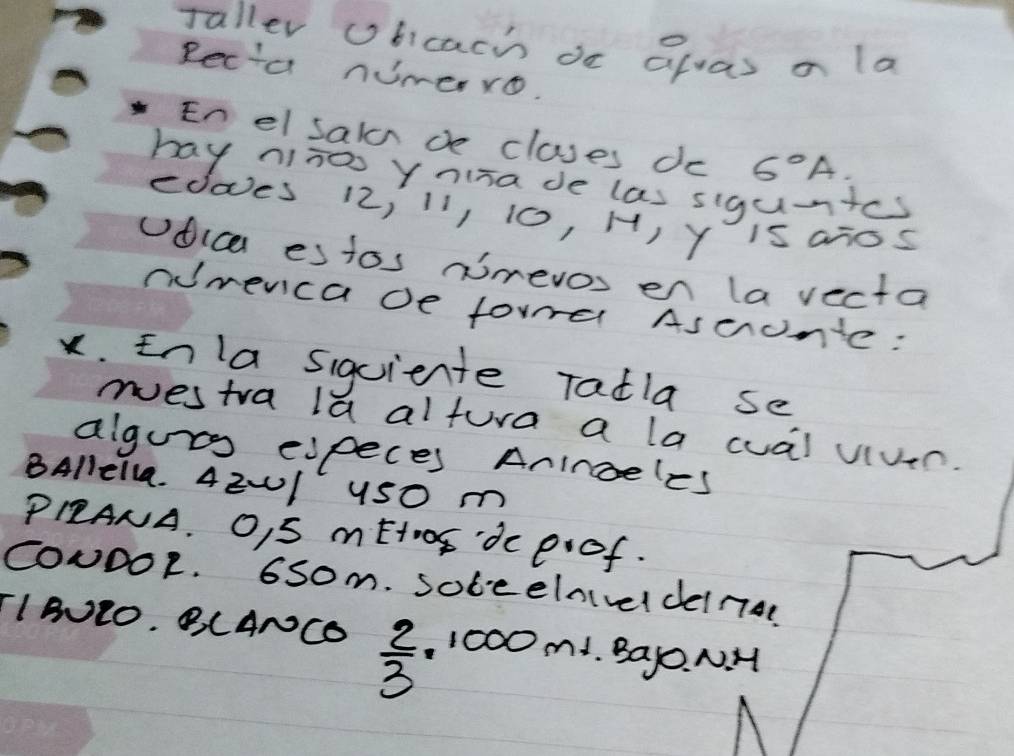 Taller Ubicacin de afras a la
Recta númerro.
* En el salon de clases de 6°A.
hay niños y niña de las siguntes
edades 12, 11, 10, 14, y 15 años
Ubica estos números en la recta
númerica de forma Asendente:
x. En la siguiente Tabla se
muestra la altura a la cuál viven.
algunos especes Animaeles
BAllella. Azul 450 m
PIRANA. 0,5 mEtros de prof.
CONDOR. 650m. sobre el nivel del MAR.
TIBURO. BLANCO \frac{2}{3}. 1000 mt. Bajo. N.M